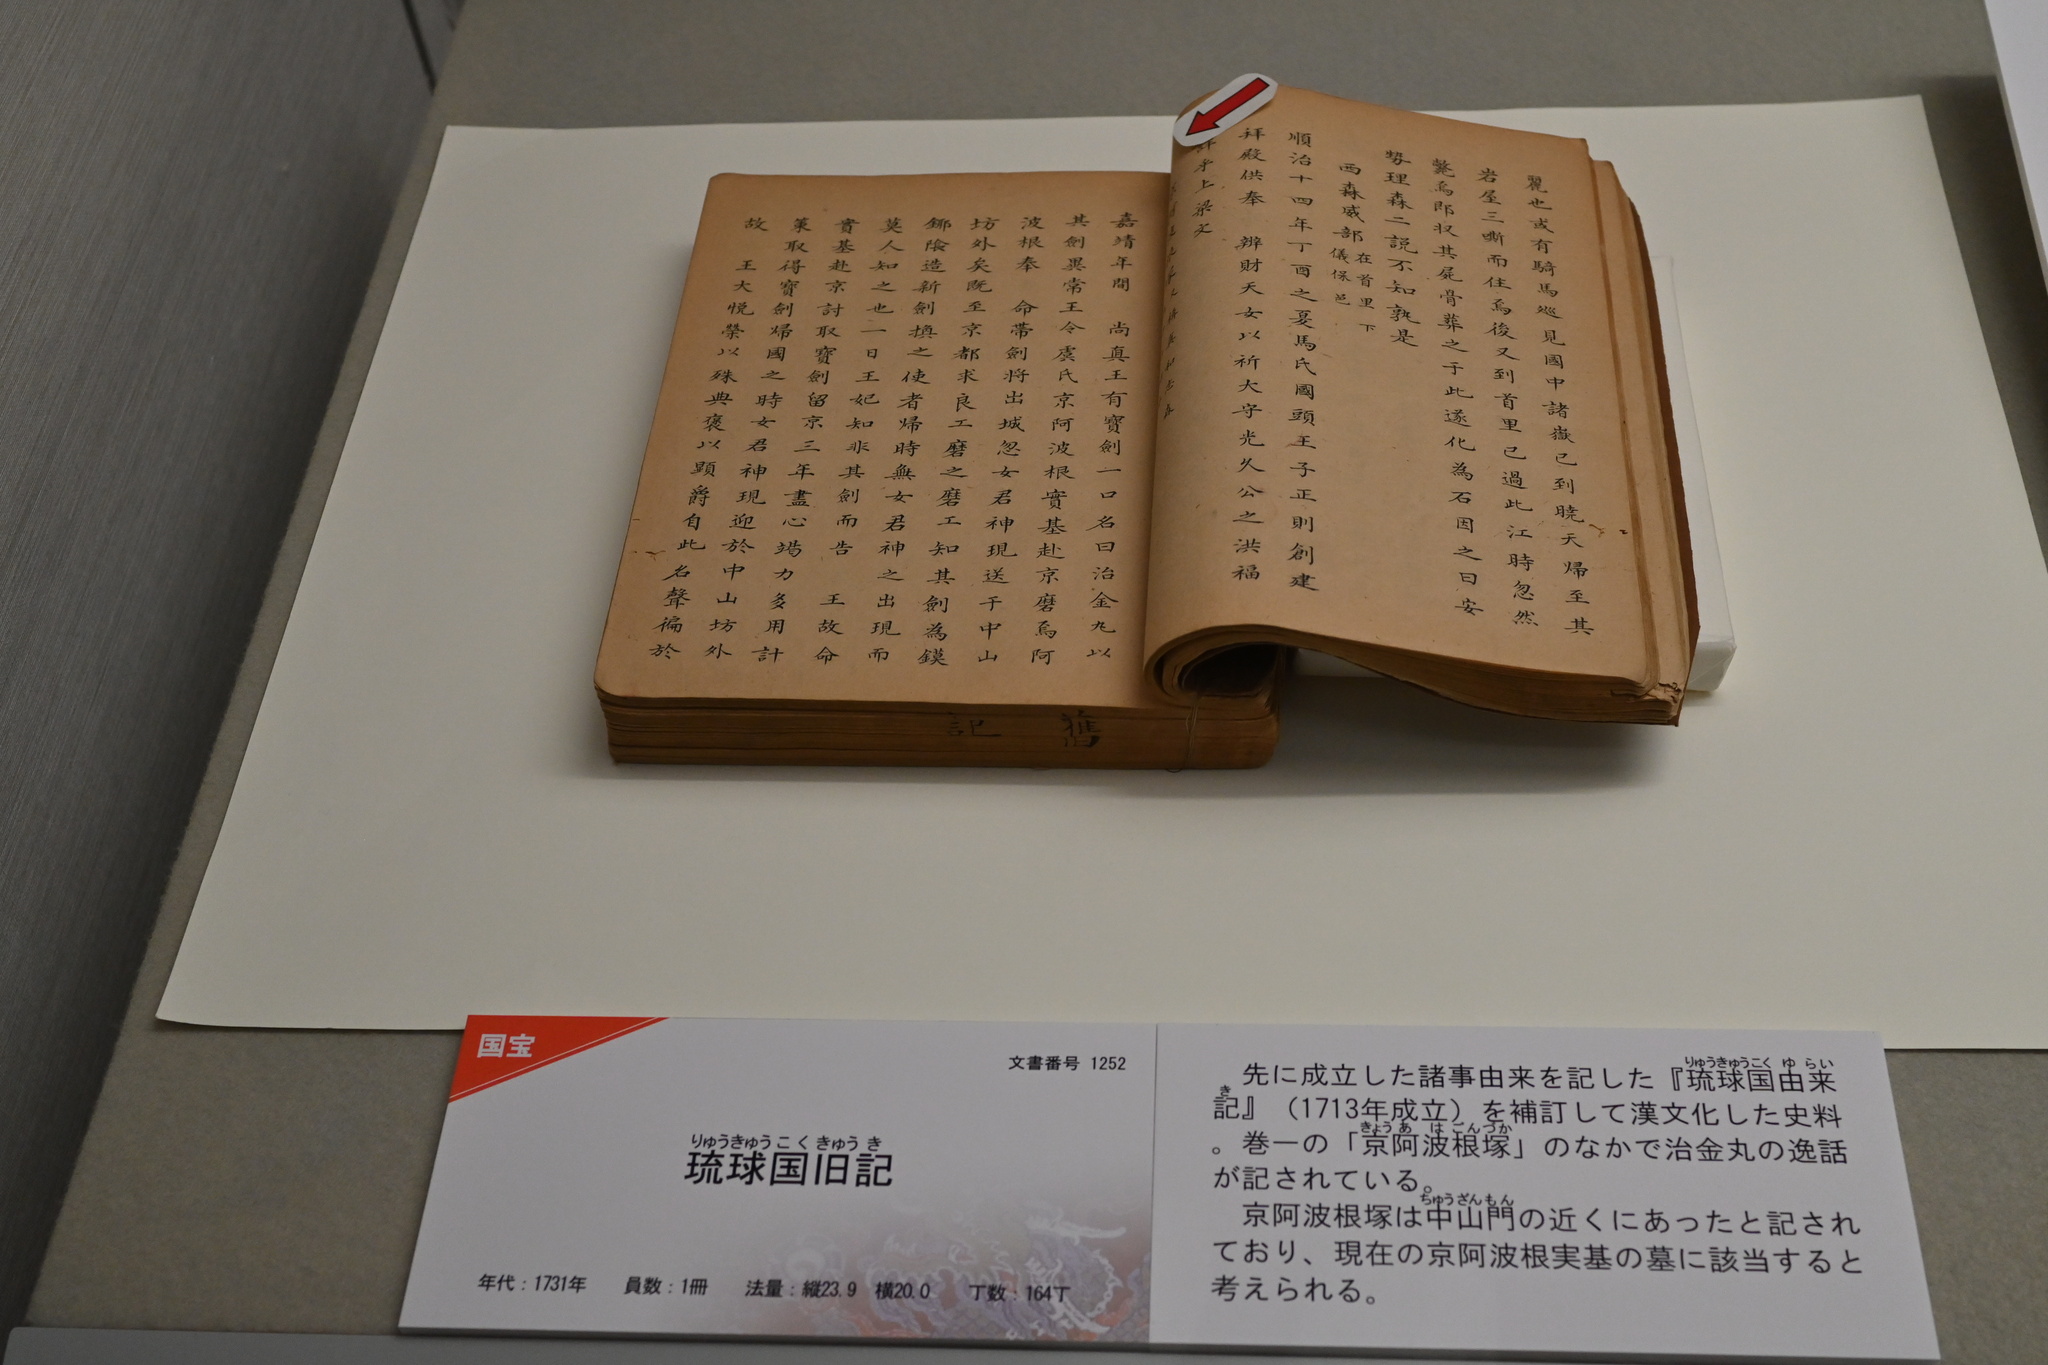 麗也或有騎馬巡見國中諸嶽已到曉天帰至其
岩屋三嘶而住焉後又到首里已過此江時忽然
斃焉即収其屍骨葬之于此遂化為石因之曰安
勢理森二説不知孰是
西森威部在首里下儀保邑
順治十四年丁酉之夏馬氏國頭王子正則創建
拜殿供奉 辨財天女以祈大守光久公之洪福
上梁文
嘉靖年間 尚真王有寶劍一口名曰治金丸以
其劍異常王令虞氏京阿波根實基赴京磨焉阿
波根奉 命帯劍將出城忽女君神現送于中山
坊外矣既至京都求良工磨之磨工知其劍為鏌
鎁陰造新劍換之使者帰時無女君神之出現而
莫人知之也一日王妃知非其劍而告 王故命
實基赴京討取寶劍留京三年盡心竭力多用計
策取得寶劍帰國之時女君神現迎於中山坊外
故 王大悦榮以殊典褒以顕爵自此名聲徧於
舊記
国宝
文書番号 1252
りゅうきゅうこくきゅうき
琉球国旧記
年代:1731年 員数:1冊 法量:縦23.9 横20.0 丁数:164丁
りゅうきゅうこくゆらい
先に成立した諸事由来を記した『琉球国由来
き
記』（1713年成立）を補訂して漢文化した史料
きょうあはごんづか
。巻一の「京阿波根塚」のなかで治金丸の逸話
が記されている。
ちゅうざんもん
京阿波根塚は中山門の近くにあったと記され
ており、現在の京阿波根実基の墓に該当すると
考えられる。